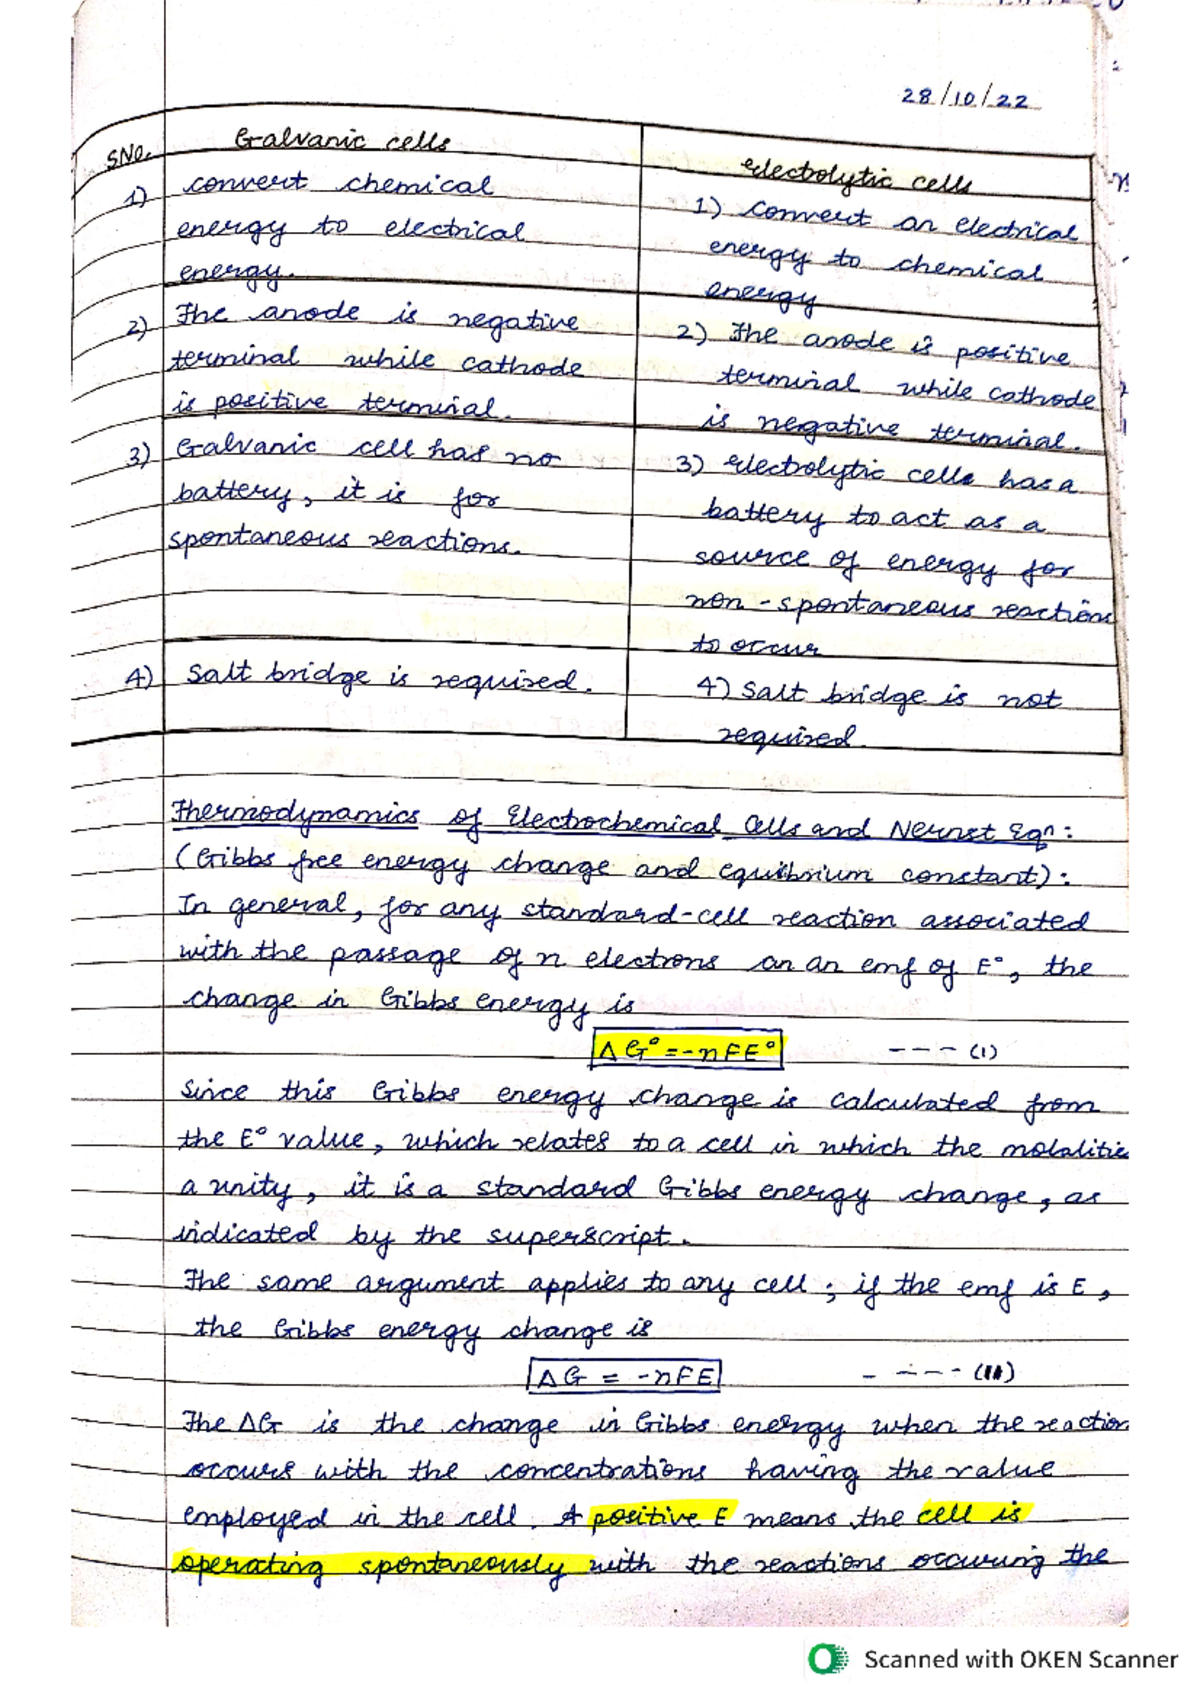 28/10/22
SNo. Galvanic cells Electrolytic cells
1) convert chemical
energy to electrical
energy.
1) Convert an electrical
energy to chemical
energy
2) The anode is negative
terminal while cathode
is positive terminal.
2) The anode is positive
terminal while cathode
is negative terminal.
3) Galvanic cell has no
battery, it is for
spontaneous reactions.
3) Electrolytic cells has a
battery to act as a
source of energy for
non-spontaneous reactions
to occur
4) Salt bridge is required.
4) Salt bridge is not
required.
Thermodynamics of Electrochemical Cells and Nernst Eqn:
(Gibbs free energy change and equilibrium constant):
In general, for any standard-cell reaction associated
with the passage of n electrons an an emf of E°, the
change in Gibbs energy is
ΔG° = -nFE° ---(I)
Since this Gibbs energy change is calculated from
the E° value, which relates to a cell in which the molalitie
a unity, it is a standard Gibbs energy change, as
indicated by the superscript.
The same argument applies to any cell; if the emf is E,
the Gibbs energy change is
ΔG = -nFE ----(II)
The ΔG is the change in Gibbs energy when the reaction
occurs with the concentrations having the value
employed in the cell. A positive E means the cell is
operating spontaneously with the reactions occuring the
Scanned with OKEN Scanner